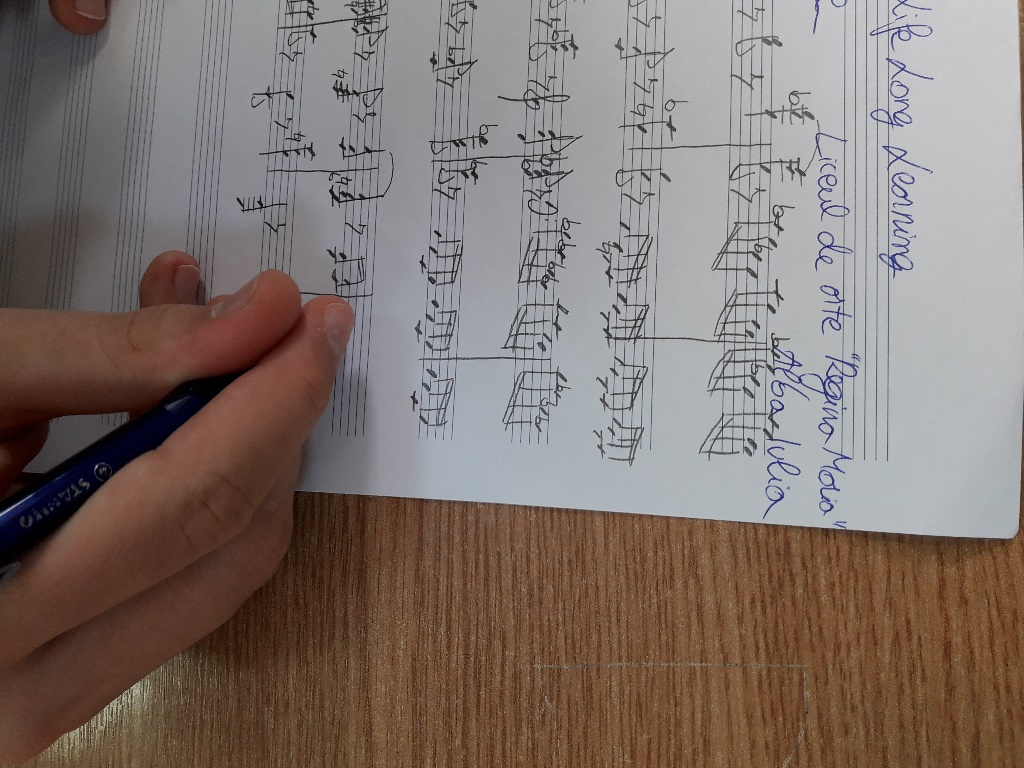 Life Long Learning
Liceul de arte "Regina Maria"
Alba Iulia